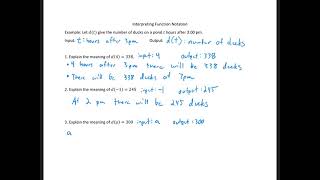 Interpreting Function Notation
Example: Let d(t) give the number of ducks on a pond t hours after 3:00 pm.
Input: t: hours after 3pm Output: d(t): number of ducks
1. Explain the meaning of d(4) = 338. input: 4 output: 338
• 4 hours after 3pm there will be 338 ducks
• There will be 338 ducks at 7pm
2. Explain the meaning of d(−1) = 245 input: -1 output: 245
At 2 pm there will be 245 ducks
3. Explain the meaning of d(a) = 300 input: a output: 300
:a